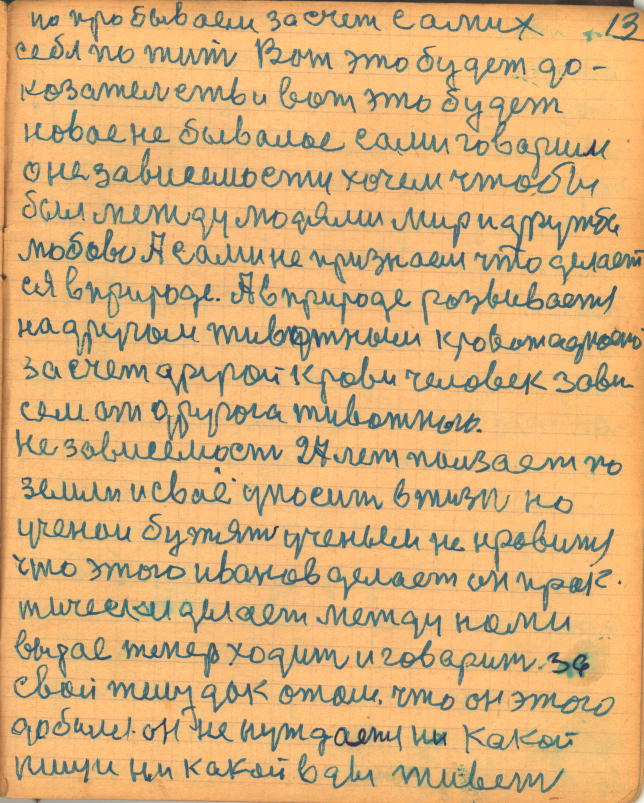 по пробываем за счет самих 13
себя по жит Вот это будет до-
козателств и вот это будет
новое не бывалое сами говарим
о не зависемости хочем чтобы
был между людями мир и дружба
любовь А сами не признаем что делает
ся в природе. А в природе розвивается
на другом животным кровожадность
за счет другой крови человек зави
сем от другога животных.
Не зависемост 27 лет поизает по
земли и своё уносит в жизн но
ученои бужят ученыем не нравится
что этого иванов делает он прак.
тически делает между нами
вытае тепер ходит и говарит за
свой желудок о том. что он этого
добился он не нуждается ни какой
пищи ни какой воды живет